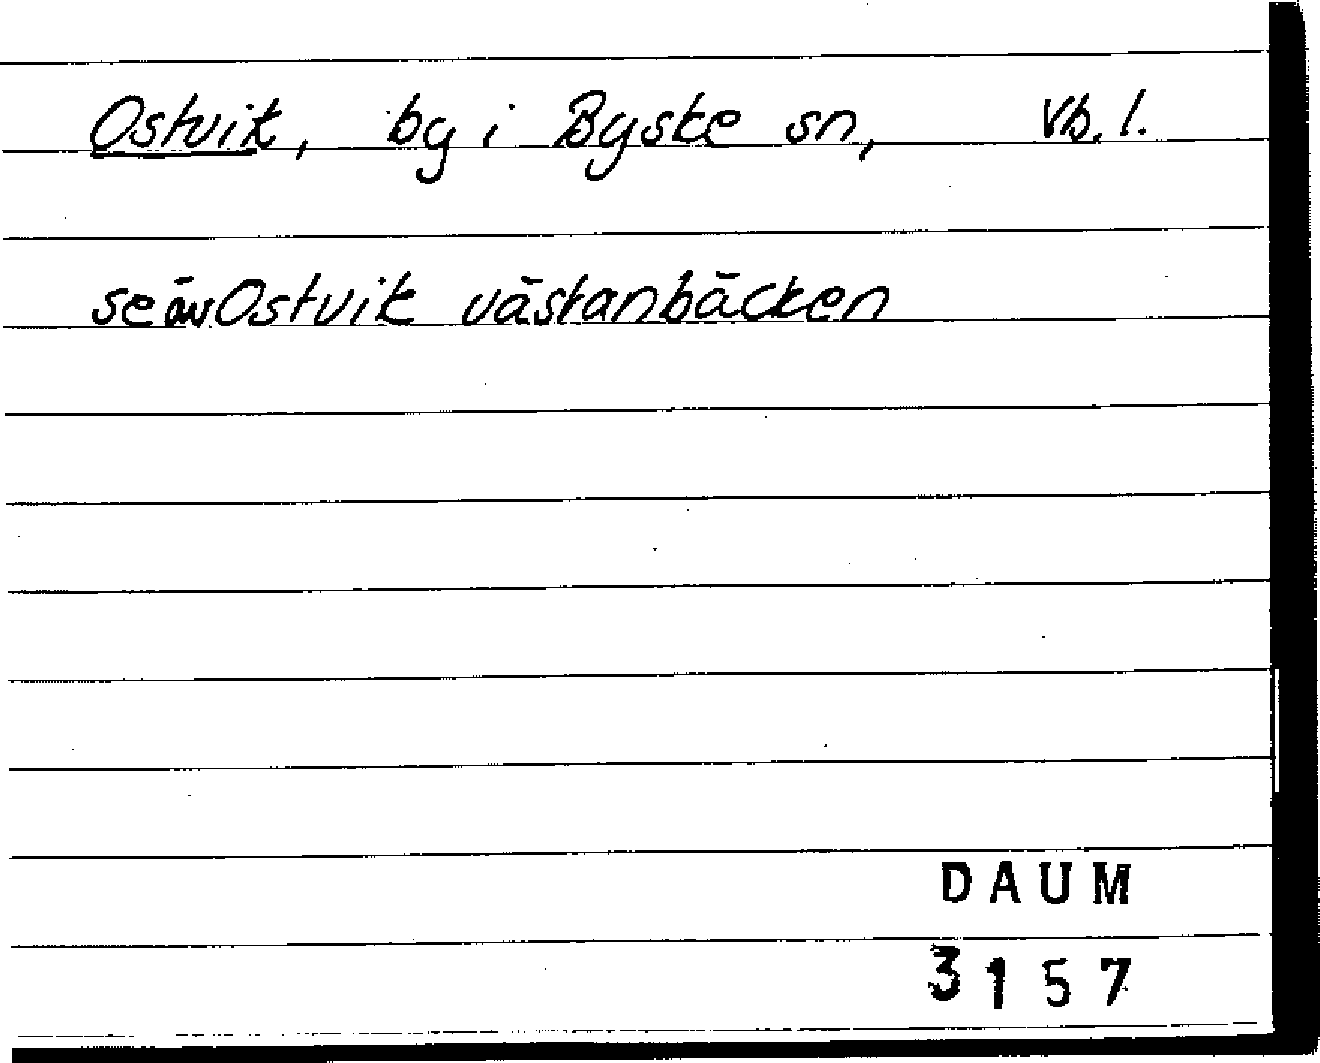 Ostvik, by i Byske sn, Vb. l.
se äv Ostvik västanbäcken
DAUM
3157